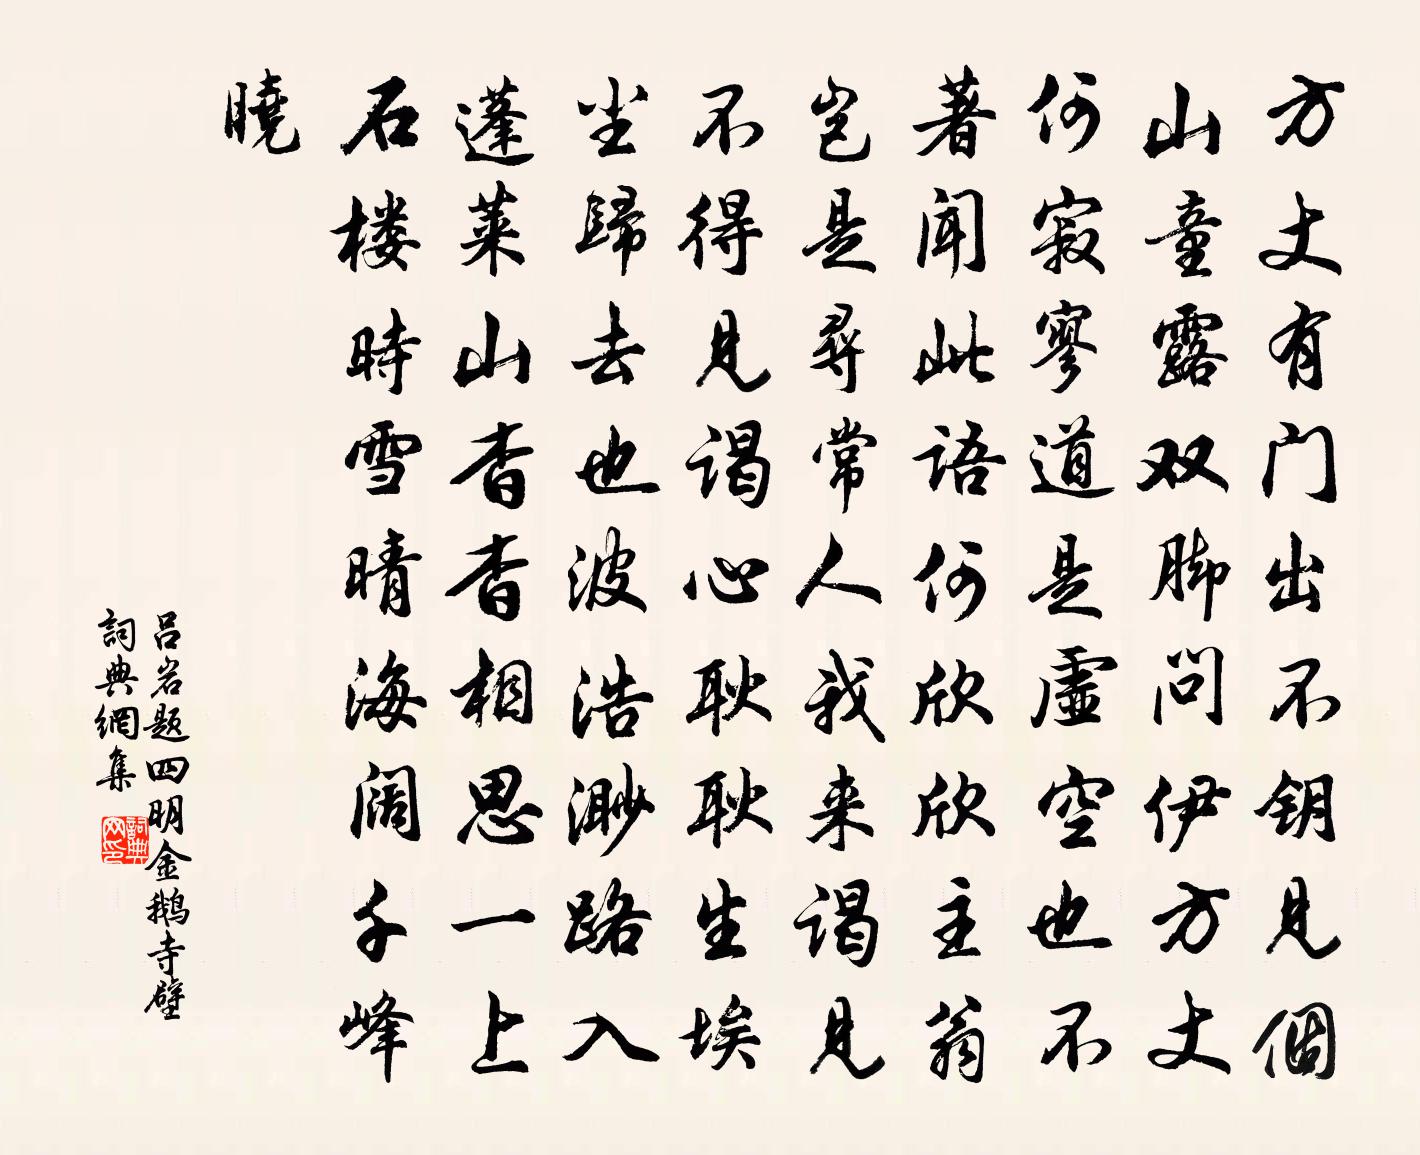 方丈有门出不钥见個
山童露双脚问伊方丈
何寂寥道是虚空也不
著闻此語何欣欣主翁
岂是尋常人我来谒見
不得見谒心耿耿生埃
尘歸去也波浩渺路入
蓬莱山杳杳相思一上
石楼時雪晴海阔千峰
曉
吕岩题四明金鹅寺壁
詞典網集
詞典网